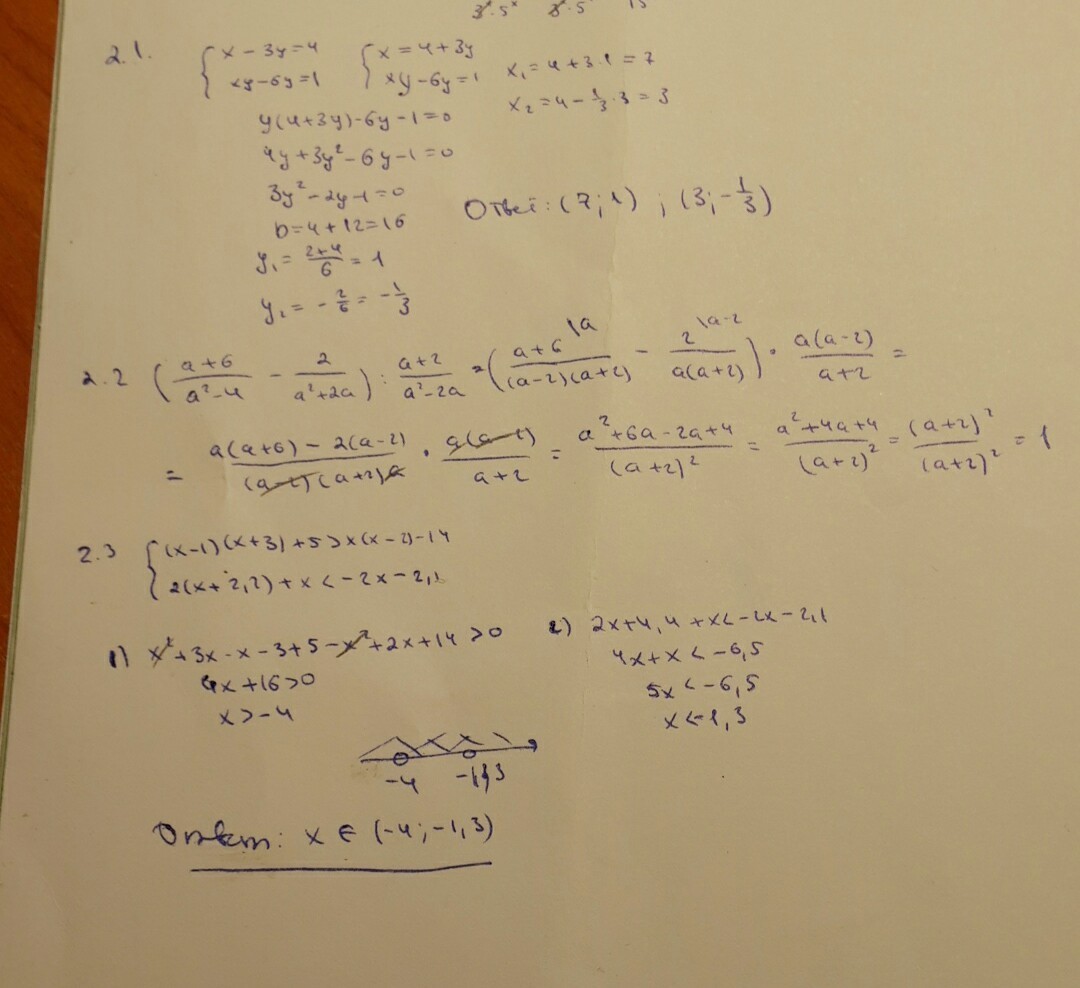 3ˣ·5ˣ 8·5 15
2.1. { x - 3y = 4 { x = 4 + 3y x₁ = 4 + 3·1 = 7
xy - 6y = 1 xy - 6y = 1 x₂ = 4 - 1/3·3 = 3
y(4+3y) - 6y - 1 = 0
4y + 3y² - 6y - 1 = 0
3y² - 2y - 1 = 0
D = 4 + 12 = 16 Ответ: (7; 1) ; (3; -1/3)
y₁ = (2+4)/6 = 1
y₂ = -2/6 = -1/3
2.2 ((a+6)/(a²-4) - 2/(a²+2a)) : (a+2)/(a²-2a) = ((a+6)/((a-2)(a+2)) \a - 2/(a(a+2)) \a-2) · a(a-2)/(a+2) =
= (a(a+6) - 2(a-2))/((a-2)(a+2)a) · a(a-2)/(a+2) = (a²+6a-2a+4)/(a+2)² = (a²+4a+4)/(a+2)² = (a+2)²/(a+2)² = 1
2.3 { (x-1)(x+3) + 5 > x(x-2) - 14
2(x+2,2) + x < -2x - 2,1
1) x² + 3x - x - 3 + 5 - x² + 2x + 14 > 0 2) 2x + 4,4 + x < -2x - 2,1
4x + 16 > 0 4x + x < -6,5
x > -4 5x < -6,5
x < -1,3
-4 -1,3
Ответ: x ∈ (-4; -1,3)